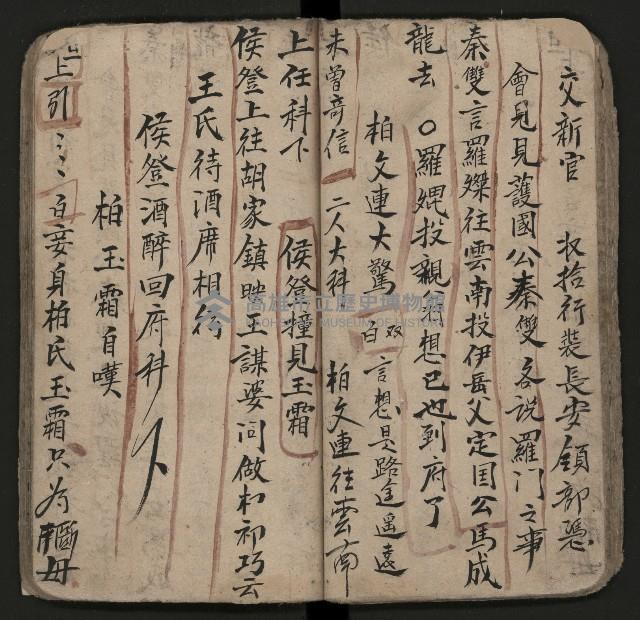 交新官　收拾行裝長安領部憑
會見見護國公秦雙各說羅門之事
秦雙言羅燦往雲南投伊岳父定国公馬成
龍去　○羅焜投親想想已也到府了
柏文連大驚　白　双言想是路途遥遠
未曾寄信　二人大科　柏文連往雲南
上任科下　侯登撞見玉霜
侯登上往胡家鎮　王謀婆问做
王氏待酒席相待
侯登酒醉回府科下
柏玉霜自嘆
上引　白妾身柏氏玉霜只為繼母
高雄市立歷史博物館
KAOHSIUNG MUSEUM OF HISTORY